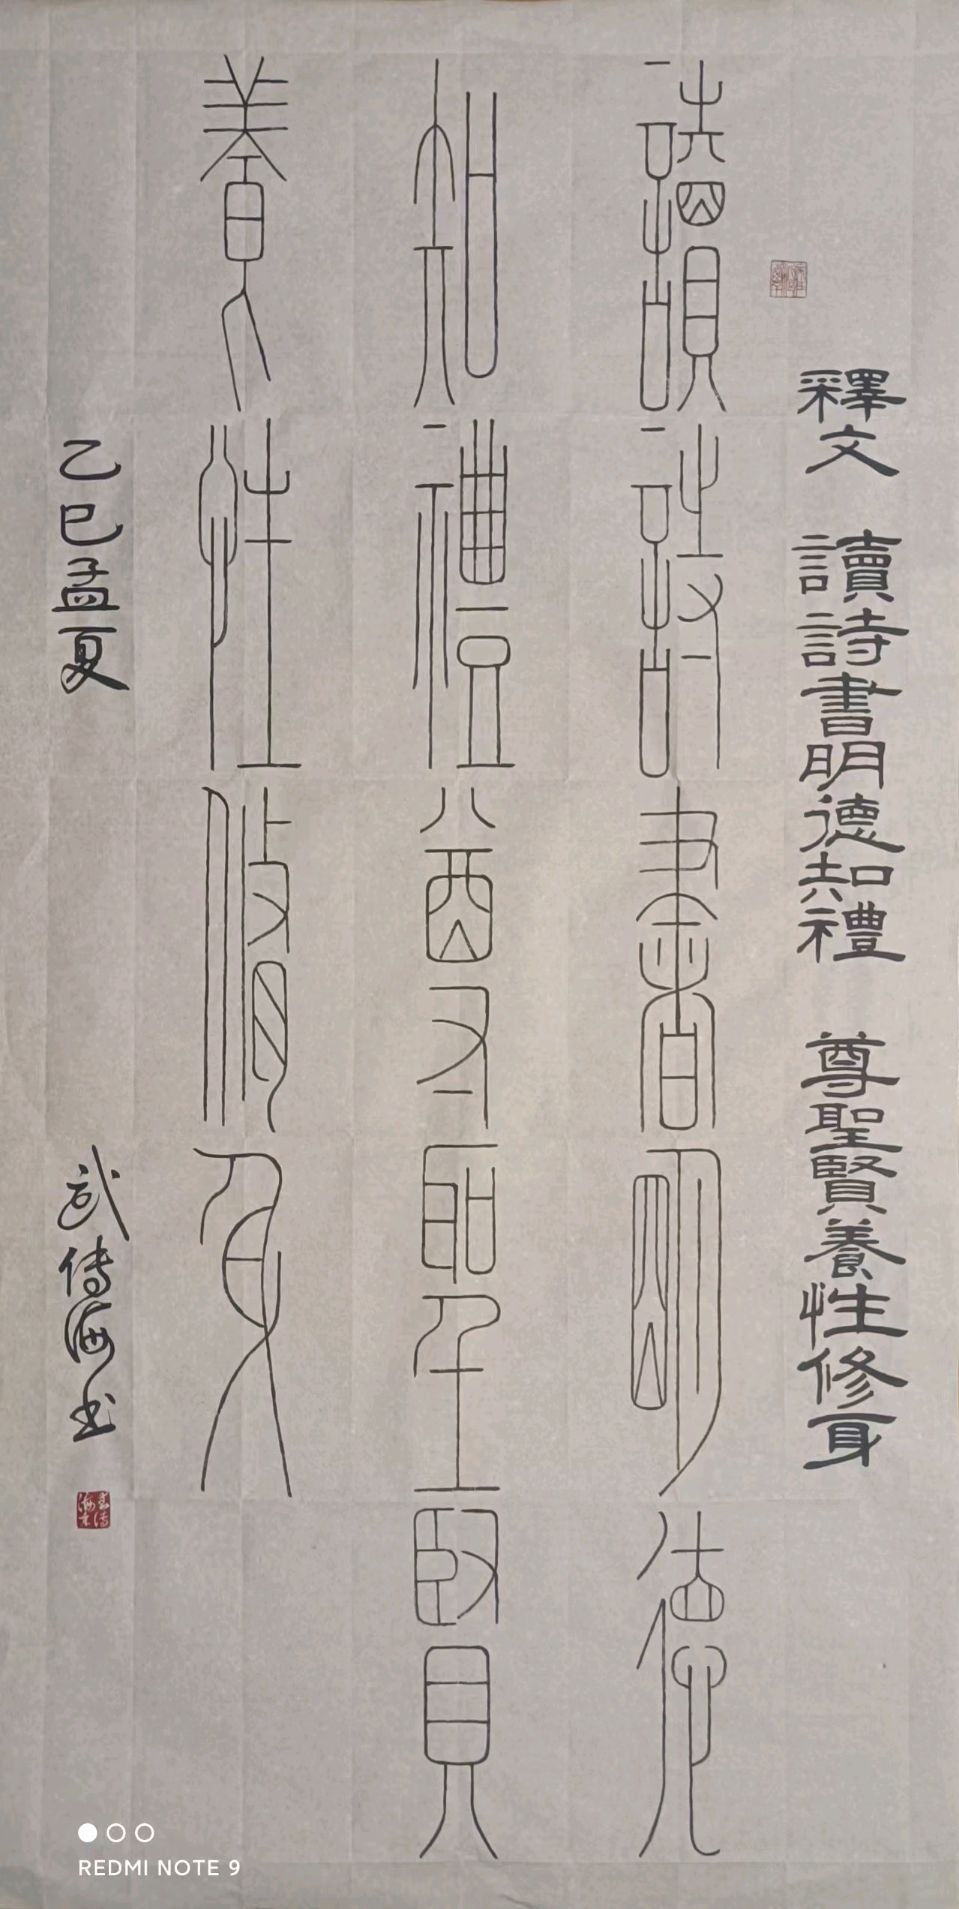 釋文 讀詩書明德知禮 尊聖賢養性修身
讀詩書明德
知禮尊聖賢
養性修身
乙巳孟夏
武傳海书
REDMI NOTE 9